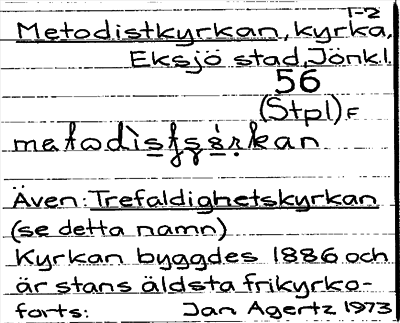 1-2
Metodistkyrkan, kyrka,
Eksjö stad, Jönk.l.
56
(Stpl) F
Även: Trefaldighetskyrkan
(se detta namn)
Kyrkan byggdes 1886 och
är stans äldsta frikyrko-
forts: Jan Agertz 1973